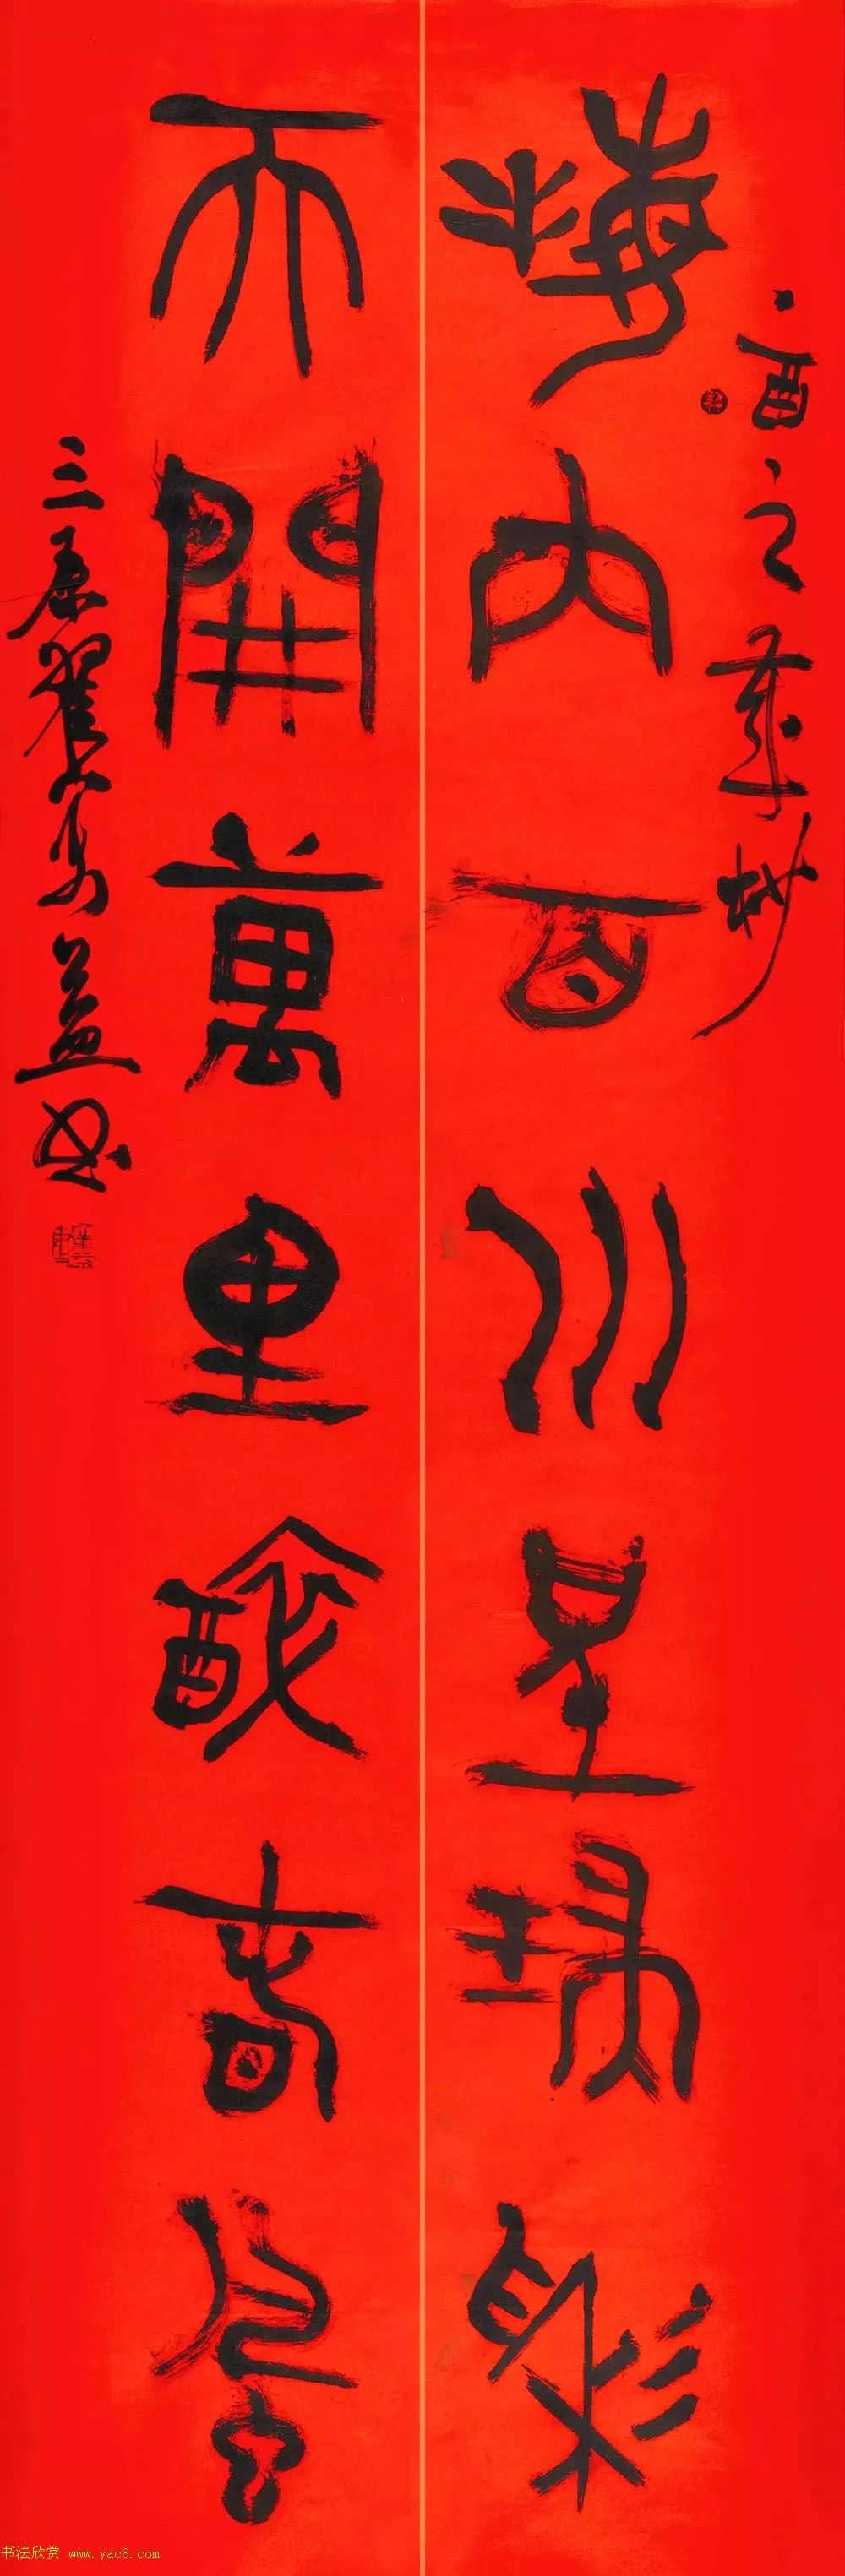 丁酉之歲杪
海内百川呈瑞彩
天開萬里春風
三翟萬益書
书法欣赏 www.yac8.com